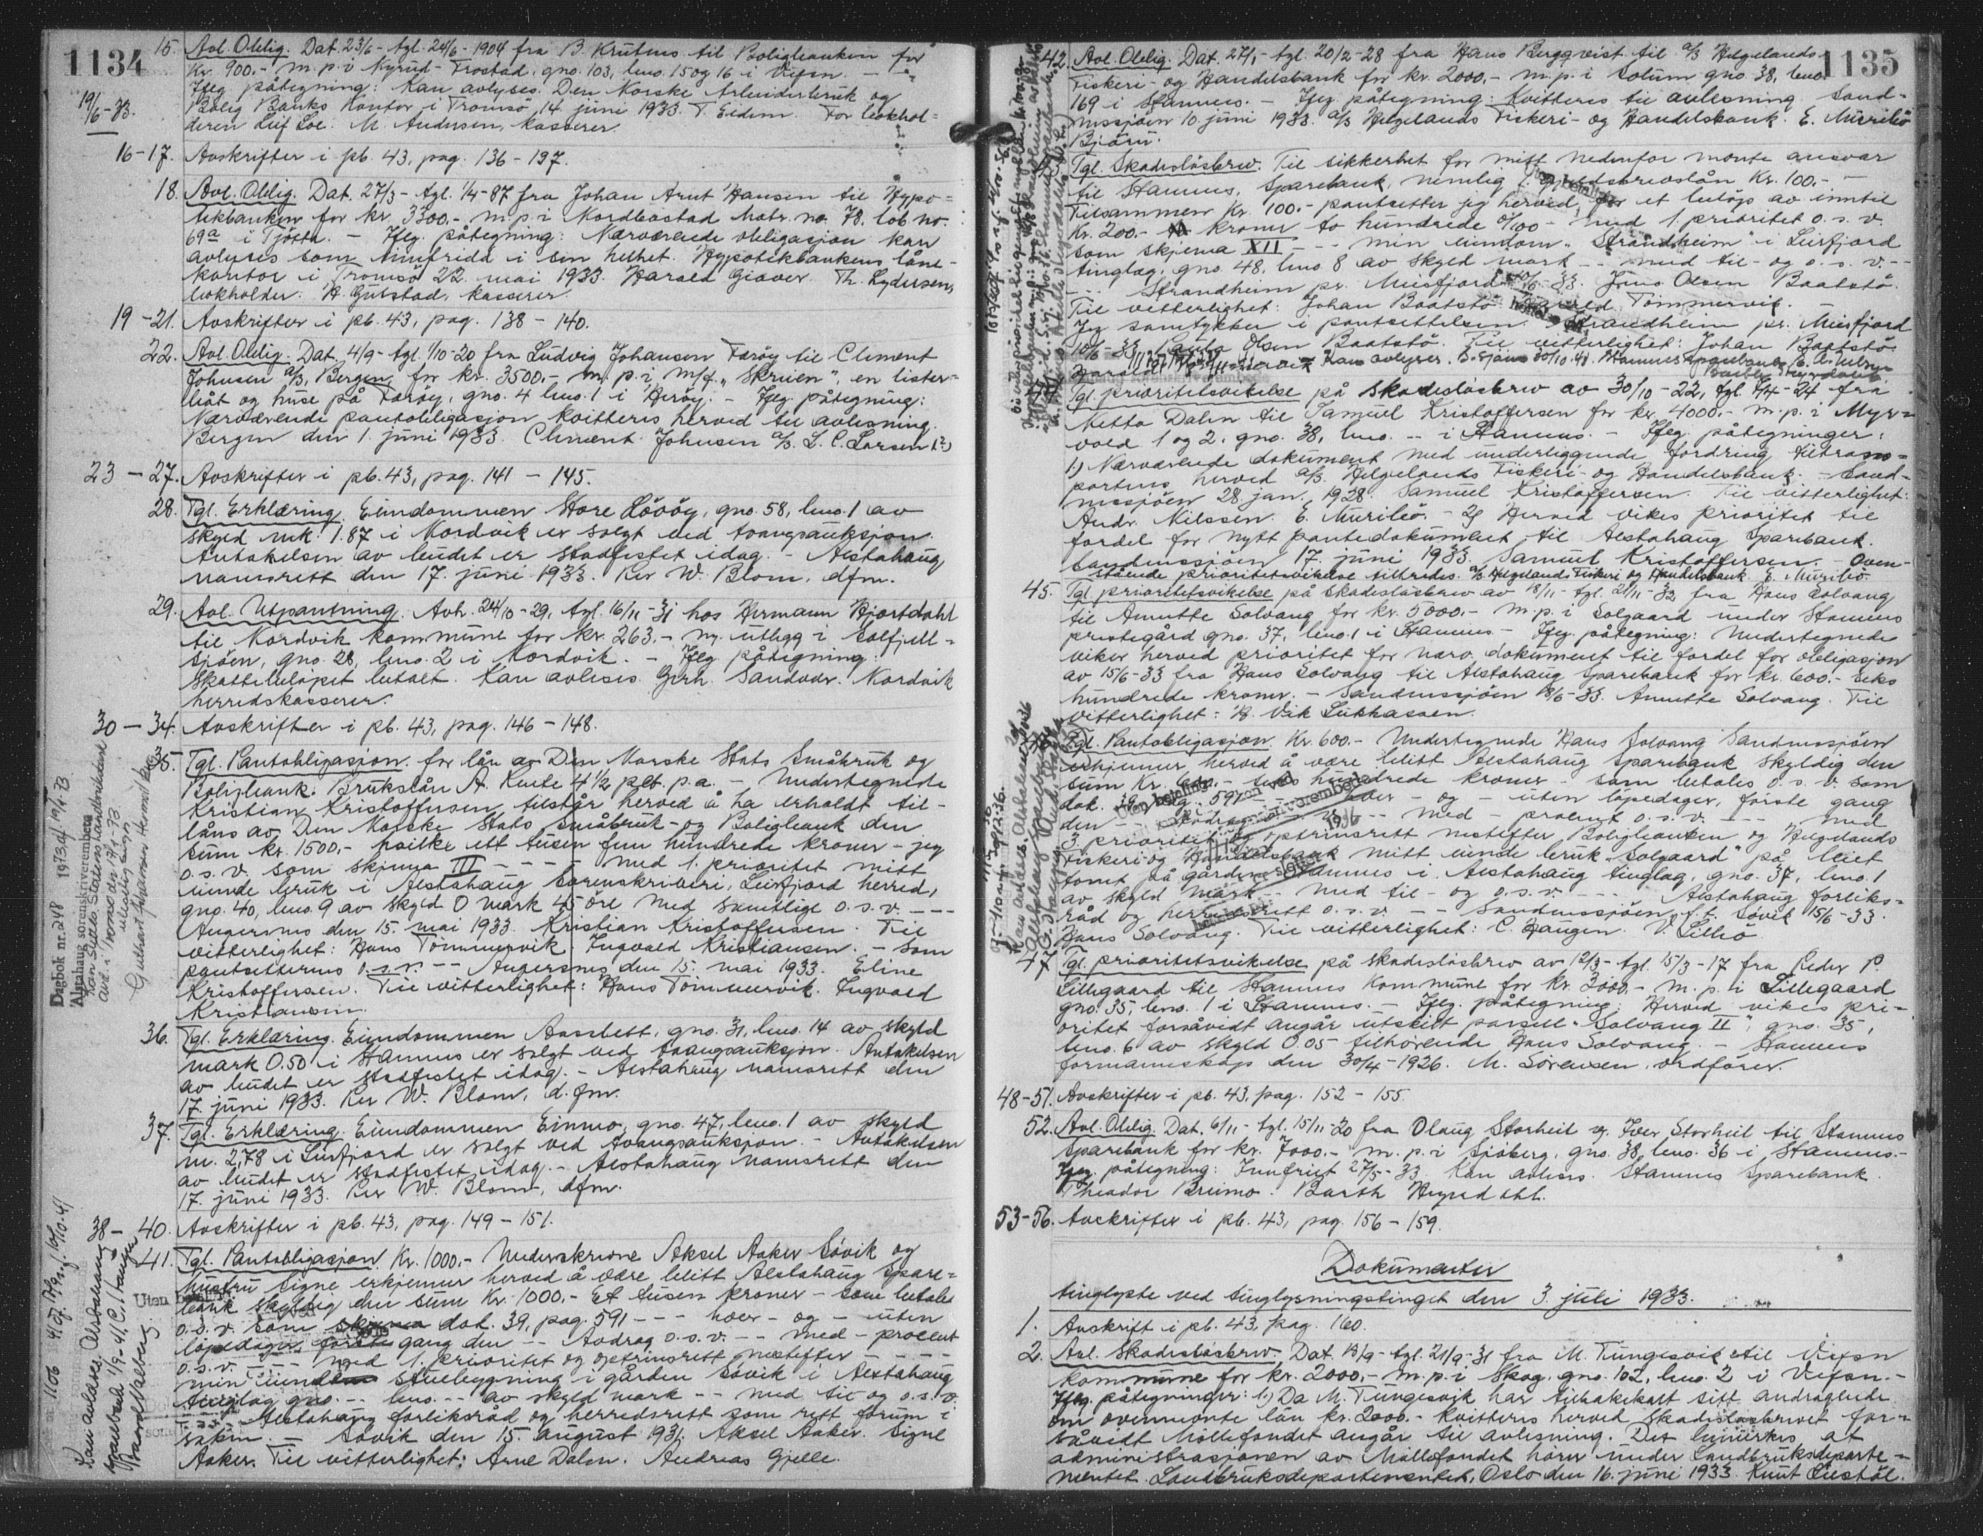 1134
19/6-33.
15. Avl. Oblig. Dat. 23/6- tgl. 24/6-1904 fra B. Krutnes til Boligbanken for
Kr. 900.- m.p.i Nyrud-Trostad, gno. 103, bno. 15 og 16 i Vefsn. -
Iflg påtegning: Kan avlyses. Den Norske Arbeiderbruk og
Bolig Banks kontor i Tromsö, 14. juni 1933. T. Eidem. For bokhol-
deren Leif Loe. M. Andersen, kasserer.
16-17. Avskrifter i pb. 43, pag. 136-137.
18. Avl. Oblig. Dat. 27/3- tgl. 1/4-87 fra Johan Arnt Hansen til Hypo-
tekbanken for kr. 3300.- m.p.i Nordbostad matr. no. 78, löb no.
69a i Tjötta. - Iflg. påtegning: Nærværende obligasjon kan
avlyses som innfridd i sin helhet. Hypotekbankens låne-
kontor i Tromsö 22. mai 1933. Harald Giæver. Th. Lydersen,
bokholder. H. Gulstad, kasserer.
19-21. Avskrifter i pb. 43, pag. 138-140.
22. Avl. Oblig. Dat. 4/9- tgl. 1/10-20 fra Ludvig Johansen Færöy til Clement
Johnsen A/S, Bergen, for kr. 3500.- m.p.i m/f. "Skruen", en lister-
båt og huse på Færöy, gno. 4 bno. 1 i Heröy. - Iflg. påtegning:
Nærværende pantobligasjon kvitteres herved til avlesning.
Bergen den 1. juni 1933. Clement Johnsen A/S. L. C. Larsen
23-27. Avskrifter i pb. 43, pag. 141-145.
28. Tgl. Erklæring. Eiendommen Store Lövöy, gno. 58, bno. 1 av
skyld mk. 1.87 i Nordvik er solgt ved tvangsauksjon.
Antakelsen av budet er stadfestet idag. - Alstahaug
namsrett den 17. juni 1933. Kr. W. Blom, dfm.
29. Avl. Utpantning. Avh. 24/10-29, tgl. 16/11-31 hos Hermann Hjortdahl
til Nordvik kommune for kr. 263.- m. utlegg i Solfjell-
sjöen, gno. 28, bno. 2 i Nordvik. - Iflg. påtegning:
Skattebelöpet betalt. Kan avleses. Gerh. Sandvær. Nordvik
herredskasserer.
30-34. Avskrifter i pb. 43, pag. 146-148.
35. Tgl. Pantobligasjon for lån av Den Norske Stats Småbruk og
Boligbank. Brukslån A. Rente 4 1/2 pct. p.a. - Undertegnede
Kristian Kristoffersen tilstår herved å ha erholdt til-
låns av Den Norske Stats Småbruk- og Boligbank den
sum kr. 1500,- hvilke ett tusen fem hundrede kroner - jeg
o.s.v. som skjema III - - - med 1. prioritet mitt
eiende bruk i Alstahaug sorenskriveri, Leirfjord herred,
gno. 40, bno. 9 av skyld 0 mark 45 öre med samtlige o.s.v. - - -
Angersnes den 15. mai 1933. Kristian Kristoffersen. Til
vitterlighet: Hans Tömmervik. Ingvald Kristiansen. - Som
pantsetterens o.s.v. - - Angersnes den 15. mai 1933. Eline
Kristoffersen. Til vitterlighet: Hans Tömmervik. Ingvald
Kristiansen.
Dagbok nr. 248 19734 19/4-73
Alstahaug sorenskriverembete
36. Tgl. Erklæring. Eiendommen Aaslett, gno. 31, bno. 14 av skyld
mark 0.50 i Stamnes er solgt ved tvangsauksjon. Antakelsen
av budet er stadfestet idag. - Alstahaug namsrett den
17. juni 1933. Kr. W. Blom, d.fm.
37. Tgl. Erklæring. Eiendommen Einmo, gno. 47, bno. 1 av skyld
m. 2,78 i Leirfjord er solgt ved tvangsauksjon. - Antakelsen
av budet er stadfestet idag. - Alstahaug namsrett den
17. juni 1933. Kr. W. Blom, dfm.
38-40. Avskrifter i pb. 43, pag. 149-151.
41. Tgl. Pantobligasjon. Kr. 1000.- Underskrevne Aksel Aaker Sövik og
hustru Signe erkjenner herved å være blitt Alstahaug Spare-
bank skyldig den sum Kr. 1000,- Et tusen kroner - som betales
o.s.v. som skjema dok. 39, pag. 591 - - - hver - og - uten
löpedager förste gang den - - Avdrag o.s.v. - - med - procent
o.s.v. - - - med 1. prioritet og optrinsrett næstefter - - -
min eiendom stuebygning i gården Sövik i Alstahaug
tinglag gno. - bno. - - av skyld mark - - med til og o.s.v.
- - Alstahaug forliksråd og herredsrett som rett forum i
saken. - Sövik den 15. august 1931. Aksel Aaker. Signe
Aaker. Til vitterlighet: Arne Dalen. Andreas Gjelle.
1135
42. Avl. Oblig. Dat. 27/1- tgl. 20/2-28 fra Hans Bergqvist til A/S Helgelands
Fiskeri og Handelsbank for kr. 2000,- m.p.i Solum gno. 38, bno.
169 i Stamnes. - Iflg. påtegning: Kvitteres til avlesning. Sand-
nessjöen 10. juni 1933. A/S Helgelands Fiskeri- og Handelsbank. E. Meriböe
Björu.
43. Tgl. Skadeslösbrev. Til sikkerhet for mitt nedenfor nevnte ansvar
til Stamnes Sparebank, nemlig: Gjeldsbrevslån Kr. 100.- -
Tilsammen Kr. 100.- pantsetter jeg herved, for et belöp av inntil
Kr. 200.- kroner to hundrede 0/100 - med 1. prioritet o.s.v.
som skjema XII - - - min eiendom "Strandheim" i Leirfjord
tinglag, gno 48, bno 8 av skyld mark - - med til- og o.s.v. - -
- Strandheim pr. Meisfjord 10/6-33. Jöns Olsen Baatstö.
Til vitterlighet: Johan Baatstö. Harald Tömmervik. -
Jeg samtykker i pantsettelsen. Strandheim pr. Meisfjord
10/6-33. Olsen Baatstö. Til vitterlighet: Johan Baatstö
Tgl. prioritetsvikelse på skadeslösbrev av 30/10-22, tgl. 1/4-24 fra
Netta Dalen til Samuel Kristoffersen for kr. 4000.- m.p.i Myr-
vold 1 og 2, gno. 38, bno. - - i Stamnes. - Iflg. påtegninger:
1.) Nærværende dokument med underliggende fordring tiltrans-
porteres herved A/S Helgelands Fiskeri- og Handelsbank. - Sand-
nessjöen 28 jan. 1928. Samuel Kristoffersen. Til vitterlighet:
Andr. Nilssen. E. Meriböe. - 2) Herved vikes prioritet til
fordel for nytt pantedokument til Alstahaug Sparebank.
Sandnessjöen 17. juni 1933. Samuel Kristoffersen. - Oven-
stående prioritetsvikelse tiltredes. A/S Helgeland Fiskeri og Handelsbank. E. Meriböe
45. Tgl. prioritetsvikelse på skadeslösbrev av 18/11- tgl. 21/11-32 fra Hans Solvang
til Annette Solvang for kr. 5000.- m.p.i Solgaard under Stamnes
prestegård gno. 37, bno. 1 i Stamnes - Iflg. påtegning: Undertegnede
viker herved prioritet for nærv. dokument til fordel for obligasjon
av 15/6-33 fra Hans Solvang til Alstahaug Sparebank for kr. 600.- seks
hundrede kroner. - Sandnessjöen 18/6-33. Annette Solvang. Til
vitterlighet: H. Vik Lukkassen.
Tgl. Pantobligasjon. Kr. 600.- Undertegnede Hans Solvang Sandnessjöen
erkjenner herved å være blitt Alstahaug Sparebank skyldig den
sum Kr. 600.- seks hundrede kroner - som betales o.s.v. som
dok. 39, pag. 591 - - hver - og - uten löpedager, förste gang
den - Avdrag o.s.v. - - med - procent o.s.v. - - med
3. prioritet og optrinsrett næstefter Boligbanken og Helgelands
Fiskeri og Handelsbank mitt eiende bruk "Solgaard" på leiet
tomt på gården Stamnes i Alstahaug tinglag, gno. 37, bno. 1
av skyld mark - - med til- og o.s.v. - - - Alstahaug forliks-
råd og herredsrett o.s.v. - - Sandnessjöen, f.t. Sövik 15/6-33.
Hans Solvang. Til vitterlighet: C. Haugen. V. Lilleö
47. Tgl. prioritetsvikelse på skadeslösbrev av 12/3- tgl. 15/3-17 fra Peder P.
Lillegaard til Stamnes Kommune for kr. 3000.- m.p.i Lillegaard
gno. 35, bno. 1 i Stamnes. - Iflg. påtegning: Herved vikes pri-
oritet forsåvidt angår utskilt parsell "Solvang II", gno. 35,
bno. 6 av skyld 0.05 tilhörende Hans Solvang. - Stamnes
formannskap den 30/4-1926. M. Sörensen, ordförer.
48-51. Avskrifter i pb. 43, pag. 152-155.
52. Avl. Oblig. Dat. 6/11- tgl. 15/11-20 fra Olaug Storheil og Iver Storheil til Stamnes
Sparebank for kr. 7000.- m.p.i Sjöberg, gno. 38, bno. 36 i Stamnes.-
Iflg. påtegning: Innfriet 27/5-33. Kan avleses. Stamnes Sparebank.
Theodor Breimo. Barth Heyerdahl.
53-56. Avskrifter i pb. 43, pag. 156-159.
Dokumenter
tinglyste ved tinglysningstinget den 3. juli 1933.
1. Avskrift i pb. 43, pag. 160.
2. Avl. Skadeslösbrev. Dat. 13/9- tgl. 21/9-31 fra M. Tungesvik til Vefsn
kommune for kr. 2000.- m.p.i Skog, gno. 102, bno. 2 i Vefsn.-
Iflg. påtegninger: 1.) Da M. Tungesvik har tilbakekalt sitt andragende
om ovennevnte lån kr. 2000.- kvitteres herved skadeslösbrevet for-
såvidt Möllefondet angår til avlesning. Det bemerkes at
administrasjonen av Möllefondet hörer under Landbruksdeparte-
mentet. Landbruksdepartementet, Oslo den 16. juni 1933. Knut Liestöl.